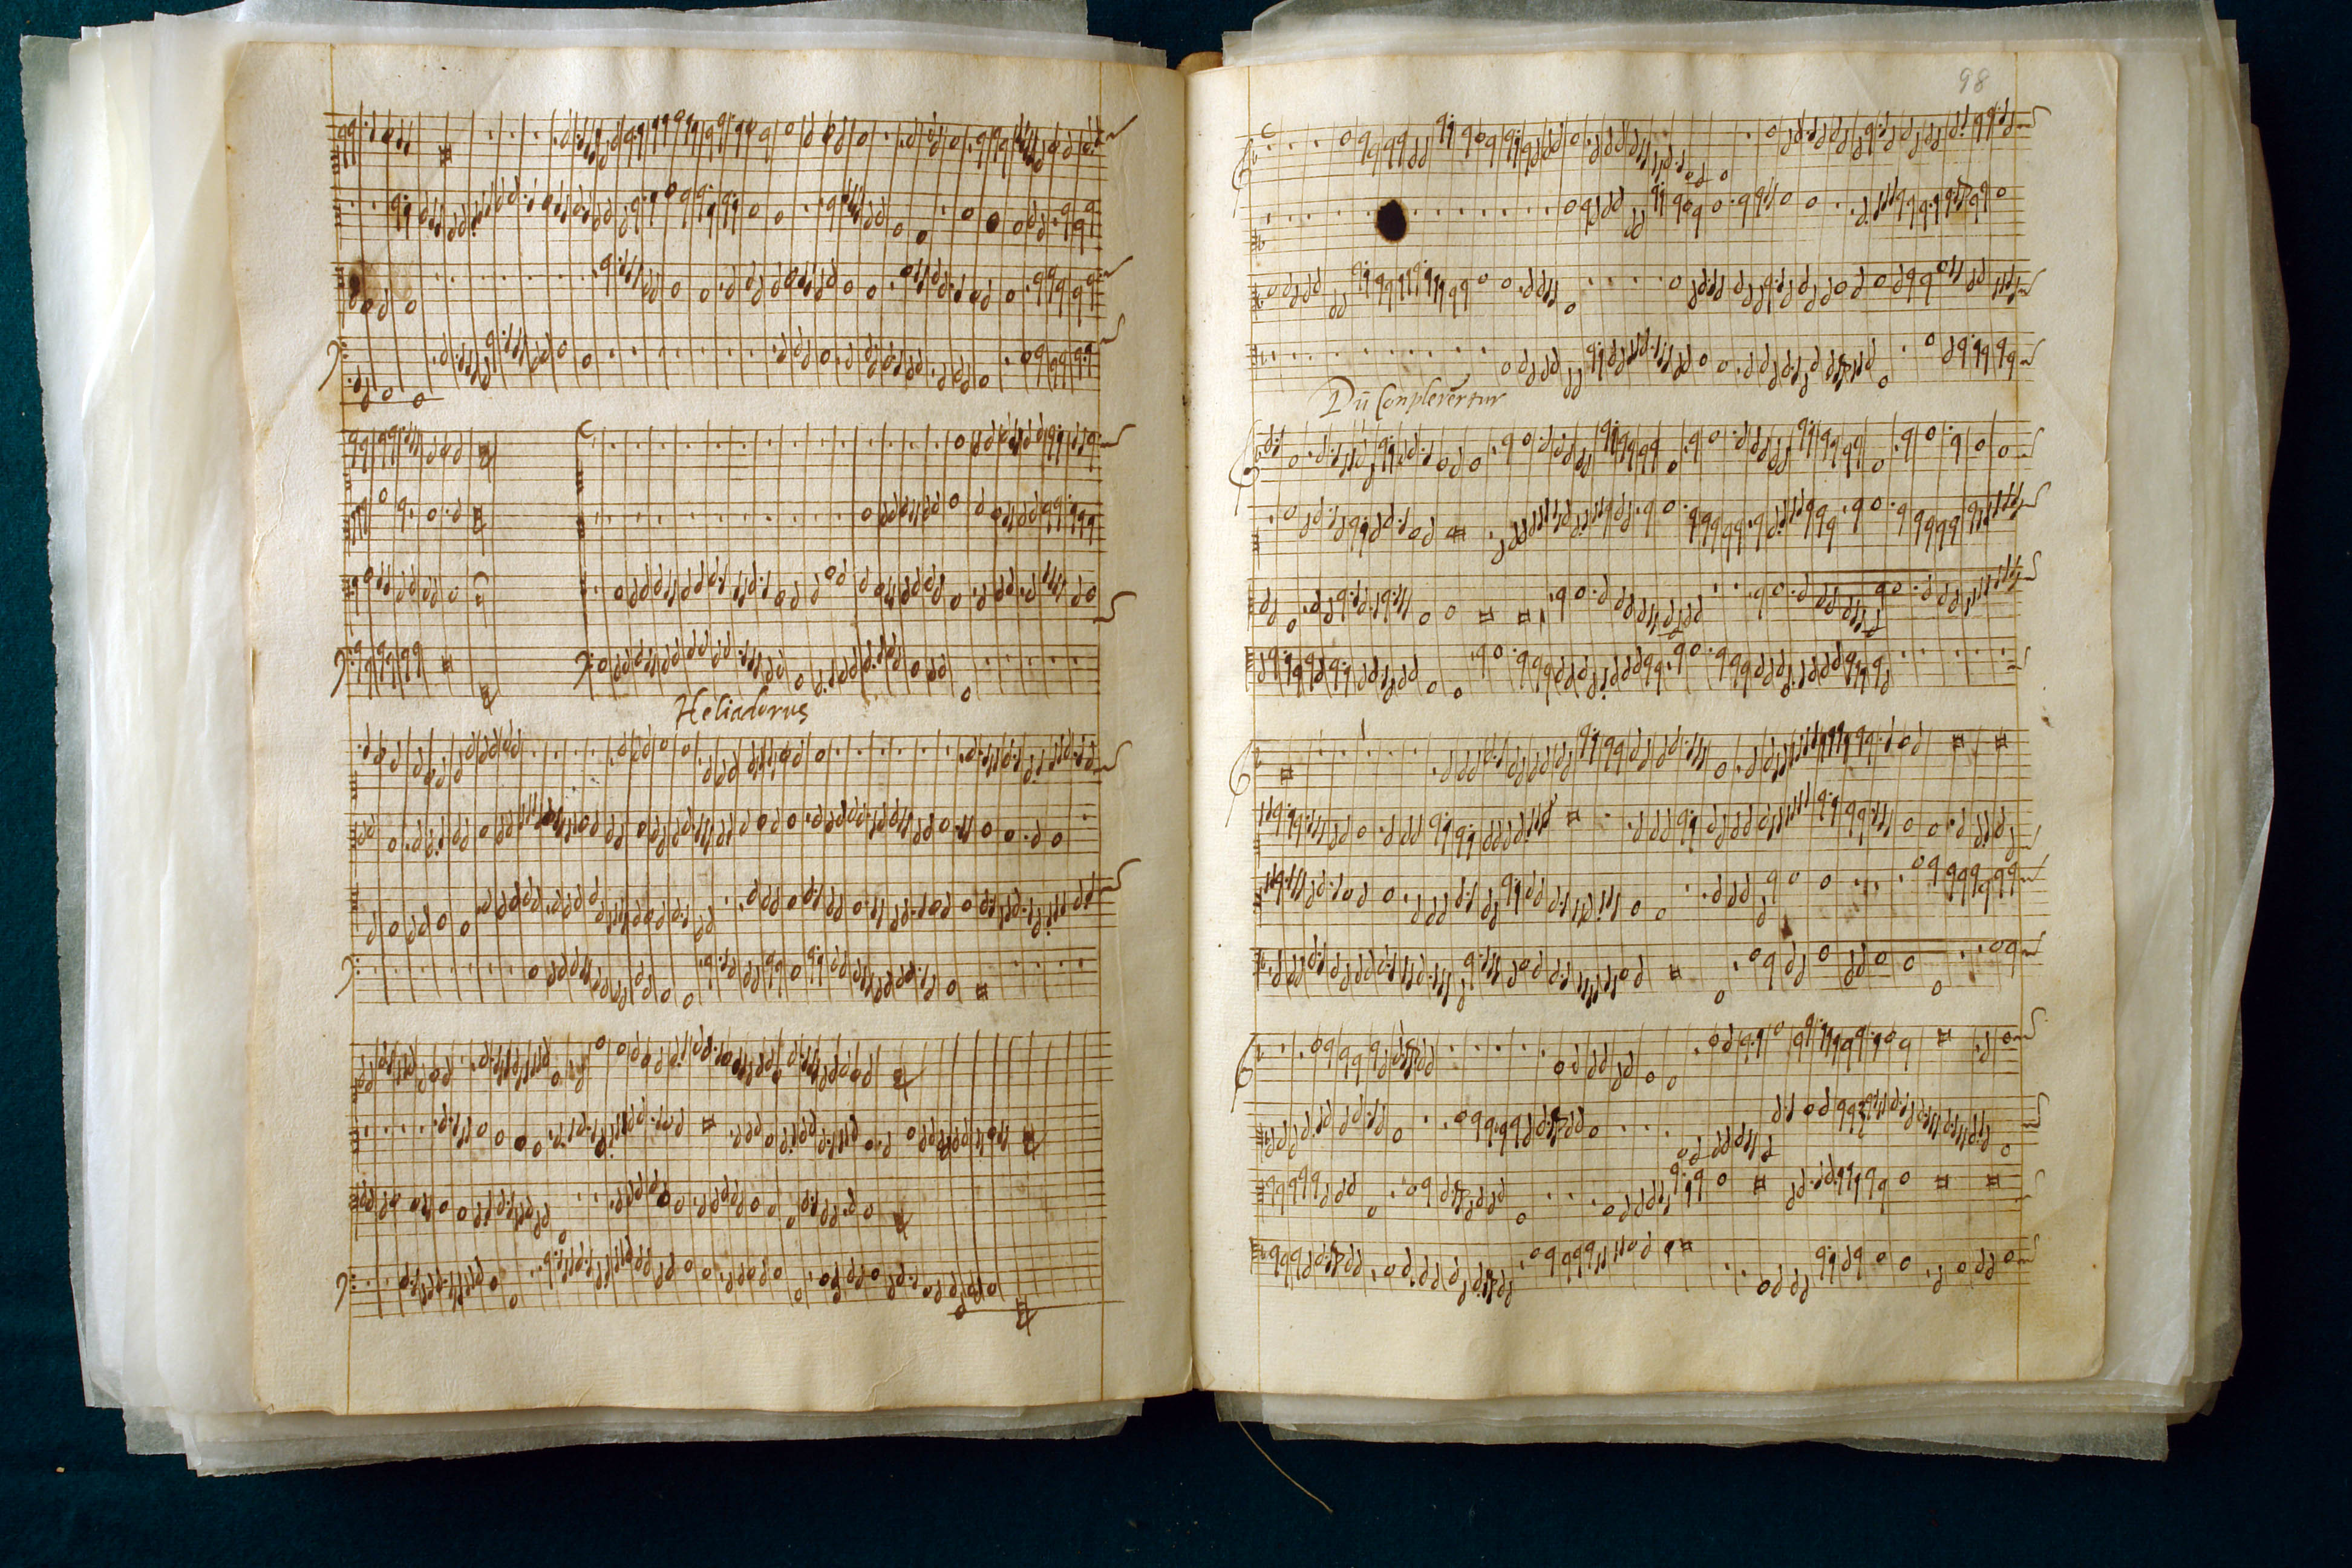 Heliadorus
98
Dū Conplerērtur